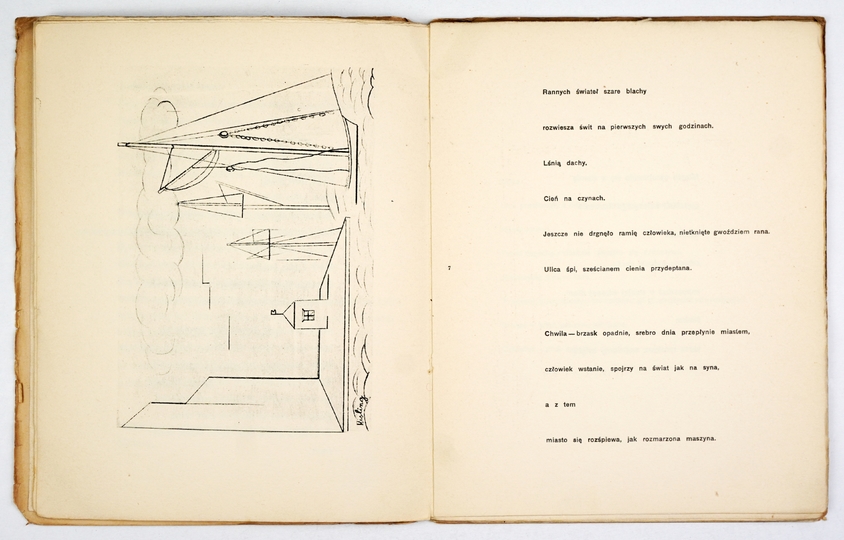 Kisling
Rannych świateł szare blachy
rozwiesza świt na pierwszych swych godzinach.
Lśnią dachy.
Cień na czynach.
Jeszcze nie drgnęło ramię człowieka, nietknięte gwoździem rana.
7
Ulica śpi, sześcianem cienia przydeptana.
Chwila — brzask opadnie, srebro dnia przepłynie miastem,
człowiek wstanie, spojrzy na świat jak na syna,
a z tem
miasto się rozśpiewa, jak rozmarzona maszyna.